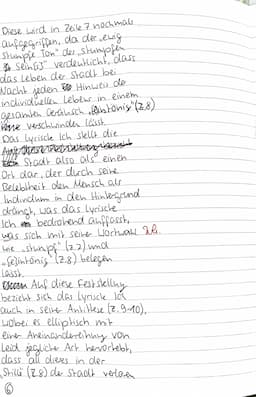 Diese wird in Zeile 7 nochmals
aufgegriffen, da der „ewig
stumpfe Ton" des „stumpfen
Seins" verdeutlicht, dass
das Leben der Stadt bei
Nacht jeden Hinweis des
individuellen Lebens in einem
gesamten Geräusch „eintönig" (Z.8)
verschwinden lässt.
Das lyrische Ich stellt die
Stadt also als einen
Ort dar, der durch seine
Belebtheit den Mensch als
Individuum in den Hintergrund
drängt, was das lyrische
Ich bedrohend auffasst,
was sich mit seiner Wortwahl
wie „stumpf" (Z.2) und
„(e)intönig" (Z.8) belegen
lässt.
Auf diese Feststellung
bezieht sich das lyrische Ich
auch in seiner Antithese (Z.9-10),
wobei es elliptisch mit
einer Aneinanderreihung von
Leid jegliche Art hervorhebt,
dass all dieses in der
„Stille" (Z.8) der Stadt verloren
6